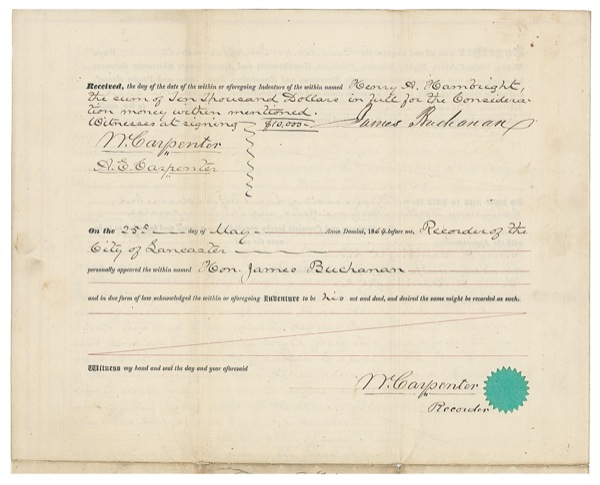 Received, the day of the date of the within or aforegoing Indenture of the within named Henry A. Hambright,
the sum of Ten Thousand Dollars in full for the Considera-
tion money within mentioned.
Witnesses at signing $10,000- James Buchanan
W. Carpenter
A. E. Carpenter
On the 25th day of May Anno Domini, 1864, before me, Recorder of the
City of Lancaster
personally appeared the within named Hon. James Buchanan
and in due form of law acknowledged the within or aforegoing Indenture to be his act and deed, and desired the same might be recorded as such.
Witness my hand and seal the day and year aforesaid
W. Carpenter
Recorder